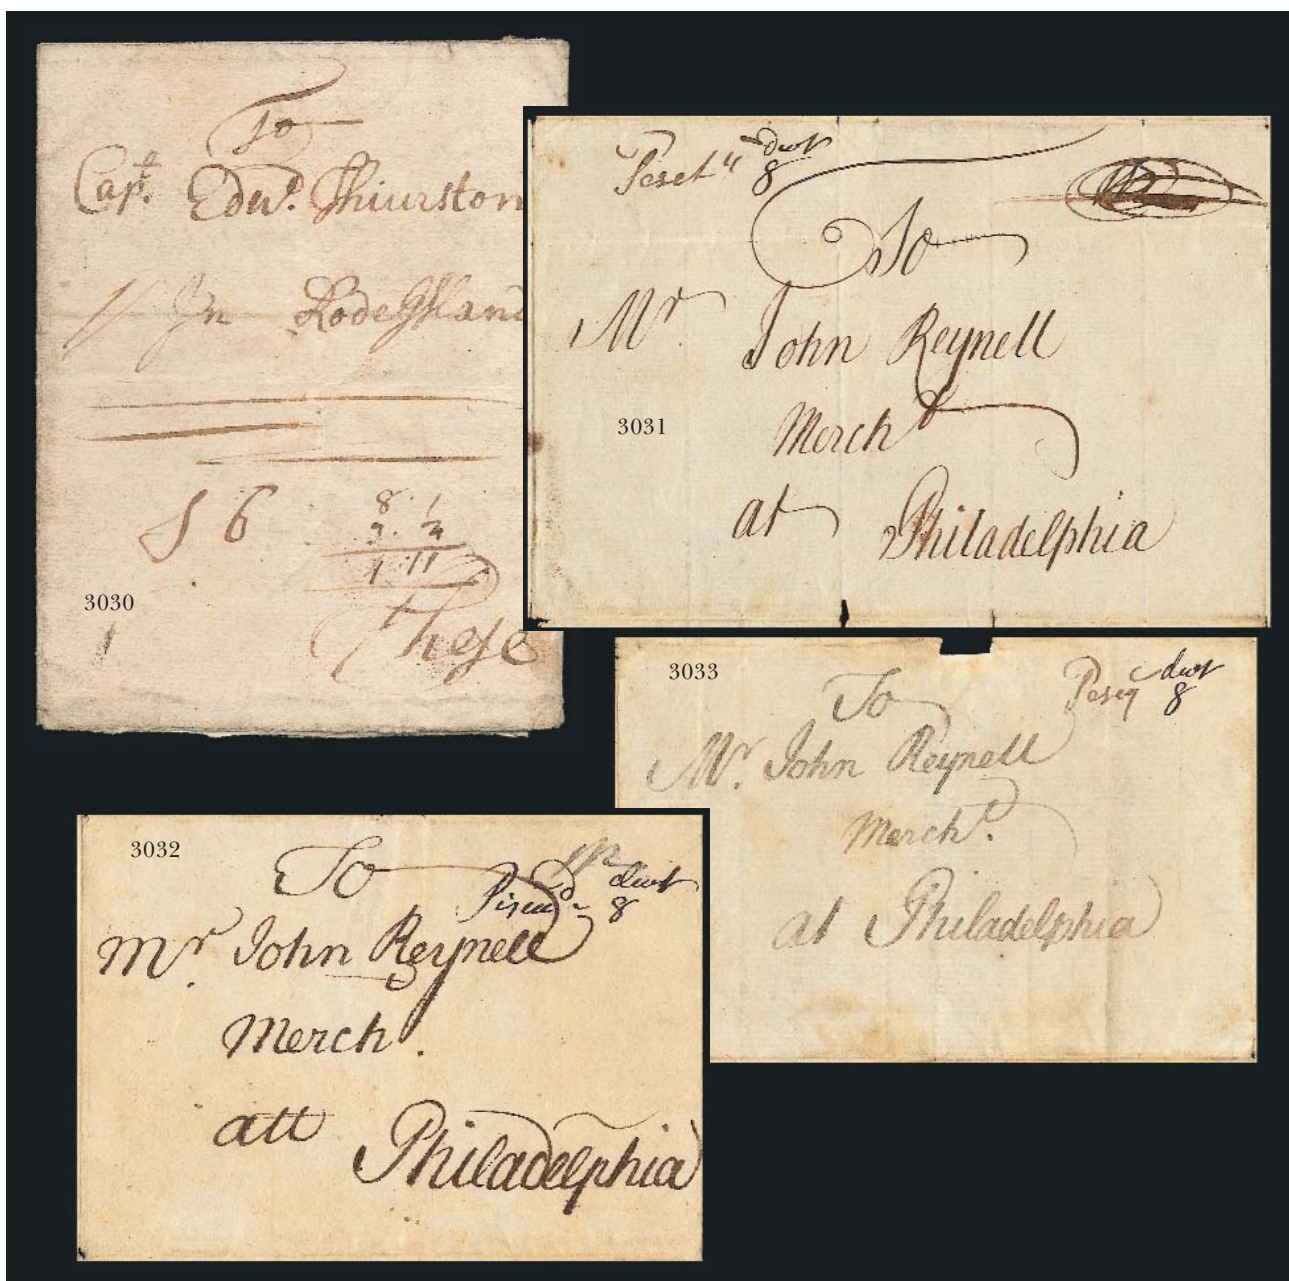 To
Capt. Edwd. Thiurston
In RodeIsland
S 6
8. 1
1. 11
3030
These
dwt
8
To
Mr John Reynell
Mercht
3031
at Philadelphia
3033
To
dwt
8
Mr. John Reynell
Mercht.
at Philadelphia
3032
To
dwt
8
Mr. John Reynell
Merch.
att Philadelphia